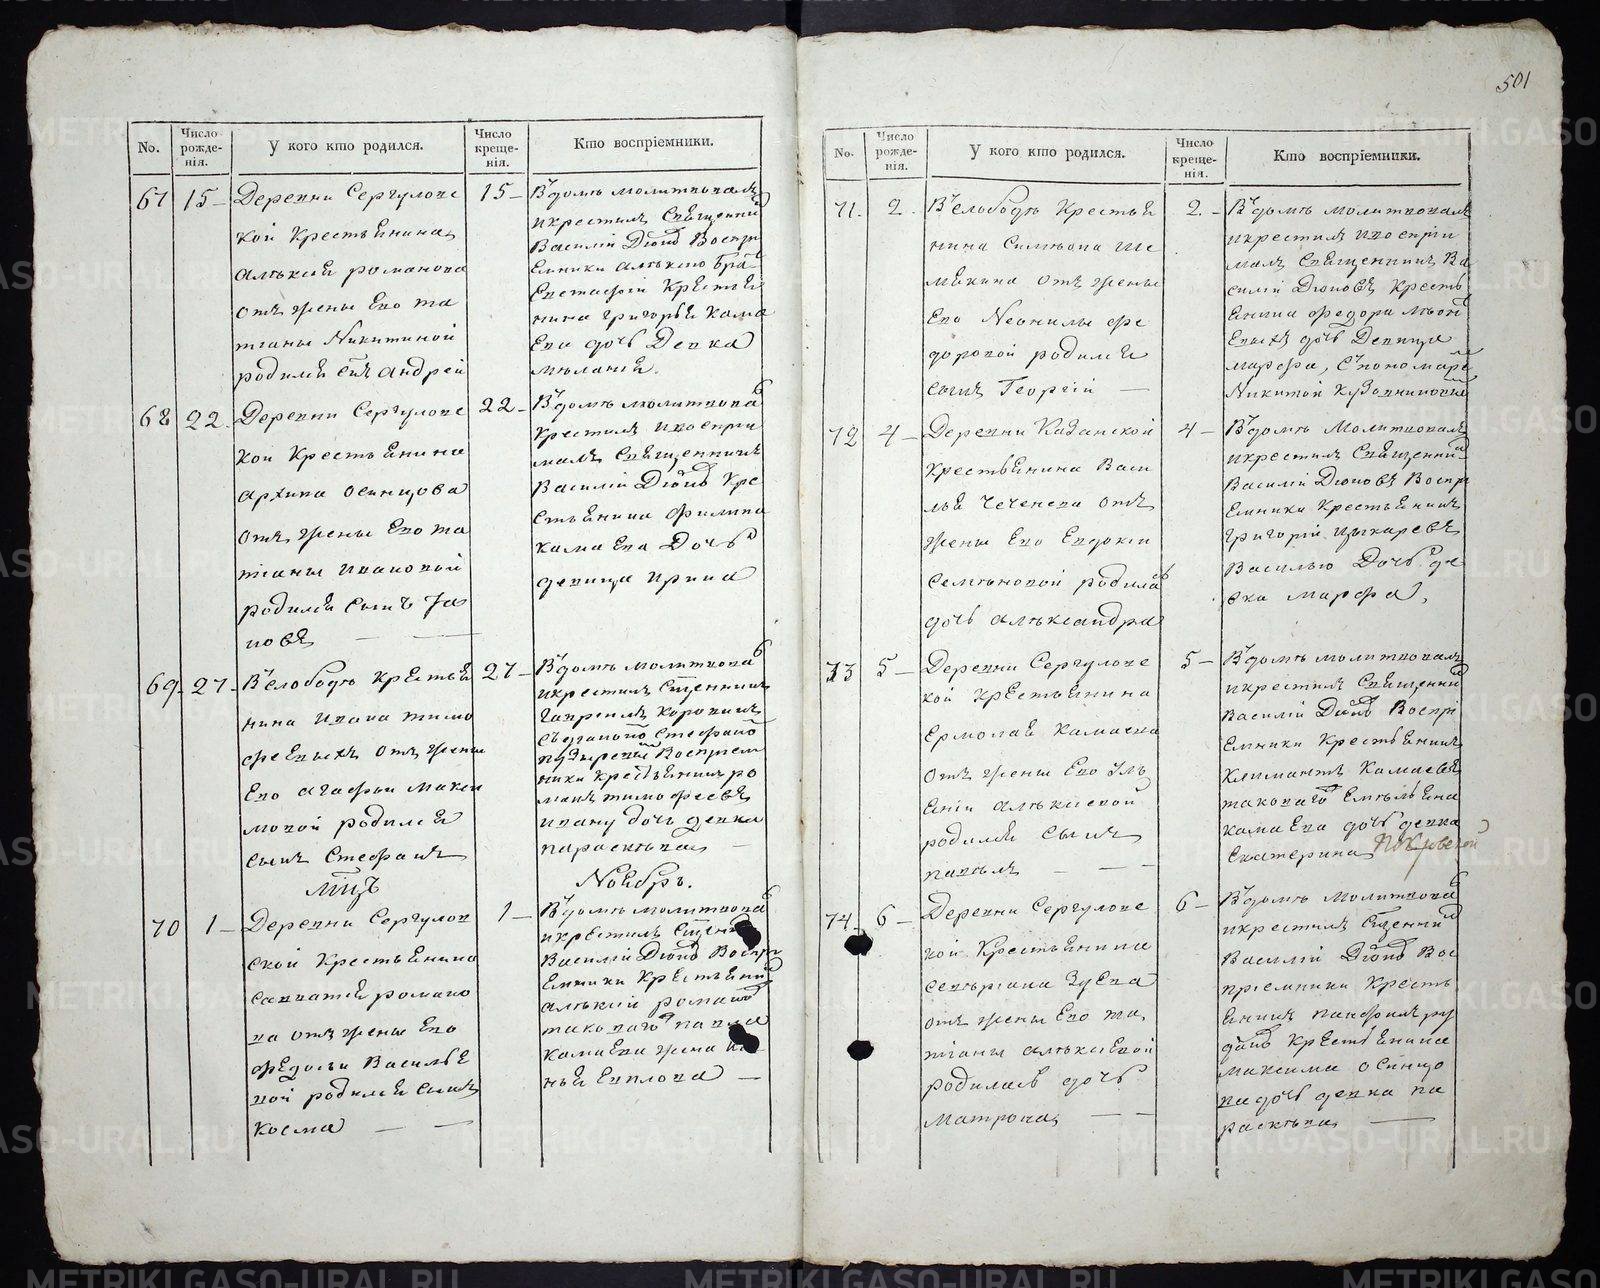 501
No.
Число рожде-нія.
У кого кто родился.
Число креще-нія.
Кто воспріемники.
67
15
Деревни Сергуловс
кой Крестьянина
алѣксѣя романова
отъ жены Его та
тіаны Никитиной
родился сынъ андрей
15
Въ домѣ молитвовалъ
и крестилъ Священникъ
Василій
Воспрі
Емники
Крестья
нина григорья Кама
Ева дочь Девка
мѣланія.
68
22
Деревни Сергуловс
кой Крестьянина
архипа осинцова
отъ жены Его та
тіаны ивановой
родился сынъ Iа
ковъ
22
Въ домѣ молитвова
крестилъ и воспри
малъ Священникъ
Василій
Кре
стьянина филипа
кама Ева Дочь
девица ирина
69
27
Въ слободѣ Кресть я
нина ивана тимо
феевыхъ отъ жены
Его агафьи макси
мовой родился
сынъ Стефанъ
27
Въ домѣ молитвова
и крестилъ Сщенникъ
гавріилъ Коровинъ
Воспріем
ники Крестьянинъ ро
манъ тимофеевъ
ивану дочь девка
параскѣва
Мцъ
Ноябрь.
70
1
Деревни Сергулов
ской Крестьянина
савватѣя романо
ва отъ жены Его
федосьи Василье
вой родился сынъ
Косма
1
Въ домѣ молитвова
и крестилъ
Василій
Воспрі
Емники Крестьянинъ
алѣксій романовъ
таковаго павла
кама Ева жена
71.
2.
Въ слободѣ Крестья
нина Симѣона
отъ жены
Его Неонилы фе
доровой родился
сынъ Георгій
2.
Въ домѣ молитвовалъ
и крестилъ и воспри
малъ Священникъ Ва
силій Дюповъ Кресть
янина федора
дочь Девица
марфа, Съ пономаре
Никитой
72
4
Деревни Казанской
крестьянина Васи
лья Чеченева отъ
жены Его Евдокіи
Семѣновой родила
дочь алѣксандра
4
Въ домѣ Молитвовалъ
и крестилъ Священник
Василій Дюповъ Воспрі
Емники Крестьянинъ
григорій цыкаревъ
Василью Дочь де
вка марфа,
73
5
Деревни Сергуловс
кой крестьянина
Ермолая Камаева
отъ жены Его Iуль
яніи алѣксіевой
родился сынъ
павелъ
5
Въ домѣ молитвовалъ
и крестилъ Священник
Василій
Воспрі
Емники Крестьянинъ
Климантъ Камаевъ
таковаго Емѣльяна
кама Ева дочь девка
Екатерина
74
6
Деревни Сергуловс
кой Крестьянина
севѣріана Зуева
отъ жены Его та
тіаны алѣксіевой
родилась дочь
матрона
6
Въ домѣ молитвова
и крестилъ Сщенник
Василій
Вос
пріемники Кресть
янинъ панфилъ ру
Крестьянина
максима осинцо
ва дочь девка па
раскѣва